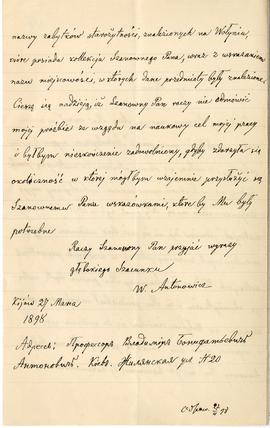 nazwy zabytków starożytności, znalezionych na Wołyniu,
które posiada kollekcja Szanownego Pana, wraz z wskazaniem
nazw miejscowości, w których dane przedmioty były znalezione.
Cieszę się nadzieją, iż Szanowny Pan raczy nie odmówić
mojej prośbie ze względu na naukowy cel mojej pracy
i byłbym nieskończenie zadowolniony, gdyby zdarzyła się
okoliczność w której mógłbym wzajemnie przysłużyć się
Szanownemu Panu wskazówkami, które by Mu były
potrzebne
Raczy Szanowny Pan przyjąć wyrazy
głębokiego Szacunku
W. Antonowicz
Kijów 27 Marca
1898
Адресъ: Профессоръ Владиміръ Бонифатьевичъ
Антоновичъ. Кіевъ. Жилянская ул N 20